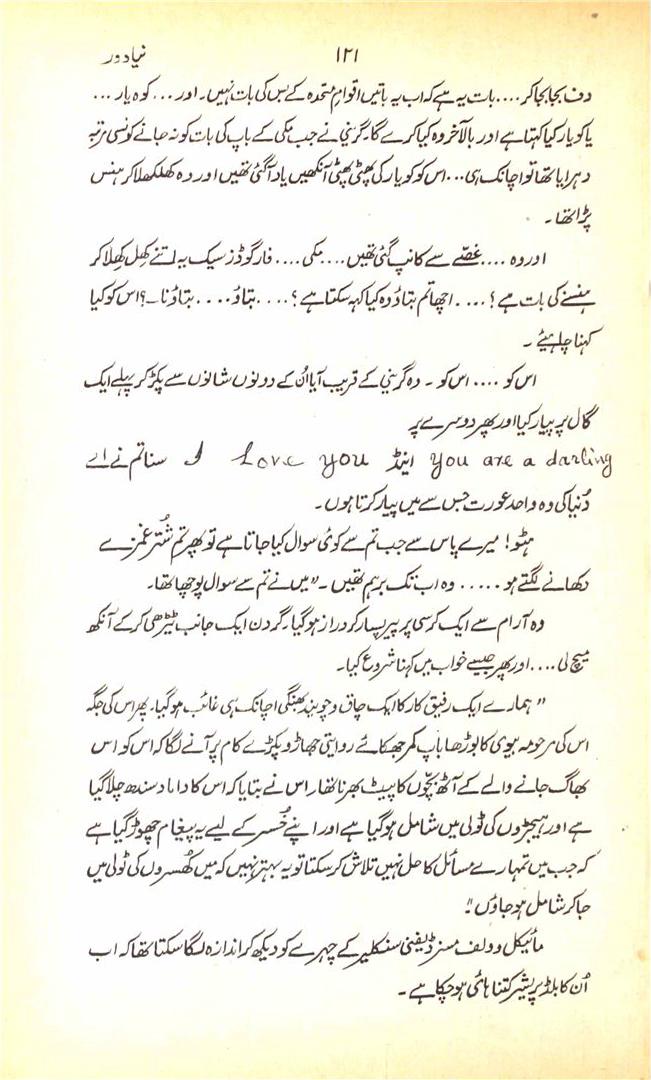 نیا دور ۱۲۱
دف بجا بجا کر .... بات یہ ہے کہ اب یہ باتیں اقوامِ متحدہ کے بس کی بات نہیں۔ اور ... کوہ یار ...
یا کو یار کیا کہتا ہے اور بالآخر وہ کیا کرے گا۔ گرینی نے جب مکی کے باپ کی بات کو نہ جانے کونسی مرتبہ
دہرایا تھا تو اچانک ہی ... اس کو کویار کی پھٹی پھٹی آنکھیں یاد آگئی تھیں اور وہ کھلکھلا کر ہنس
پڑا تھا۔
اور وہ .... غصّے سے کانپ گئی تھیں .... مکی .... فارگوڈز سیک یہ اتنے کھِل کھِلا کر
ہنسنے کی بات ہے؟ .... اچھا تم بتاؤ وہ کیا کہہ سکتا ہے؟ .... بتاؤ .... بتاؤنا ـ؟ اس کو کیا
کہنا چاہیئے۔
اس کو .... اس کو۔ وہ گرینی کے قریب آیا اُن کے دونوں شانوں سے پکڑ کر پہلے ایک
گال پر پیار کیا اور پھر دوسرے پر
I Love you اینڈ you are a darling سنا تم نے اے
دُنیا کی وہ واحد عورت جس سے میں پیار کرتا ہوں۔
ہٹو! میرے پاس سے جب تم سے کوئی سوال کیا جاتا ہے تو پھر تم شُتر غمزے
دکھانے لگتے ہو ..... وہ اب تک برہم تھیں۔ "میں نے تم سے سوال پوچھا تھا۔
وہ آرام سے ایک کرسی پر پیر پسار کر دراز ہوگیا۔ گردن ایک جانب ٹیڑھی کرکے آنکھ
میچ لی .... اور پھر جیسے خواب میں کہنا شروع کیا۔
"ہمارے ایک رفیق کار کا ایک چاق و چوبند بھنگی اچانک ہی غائب ہوگیا۔ پھر اس کی جگہ
اس کی مرحومہ بیوی کا بوڑھا باپ کمر جھکائے روایتی جھاڑو پکڑے کام پر آنے لگا کہ اس کو اس
بھاگ جانے والے کے آٹھ بچّوں کا پیٹ بھرنا تھا۔ اس نے بتایا کہ اس کا داماد سندھ چلا گیا
ہے اور ہیجڑوں کی ٹولی میں شامل ہوگیا ہے اور اپنے خُسر کے لیے یہ پیغام چھوڑ گیا ہے
کہ جب میں تمہارے مسائل کا حل نہیں تلاش کرسکتا تو یہ بہتر نہیں کہ میں کھُسروں کی ٹولی میں
جا کر شامل ہو جاؤں"۔
مائیکل وولف مسز ڈیفنی سنکلیر کے چہرے کو دیکھ کر اندازہ لگا سکتا تھا کہ اب
اُن کا بلڈ پریشر کتنا ہائی ہو چکا ہے۔